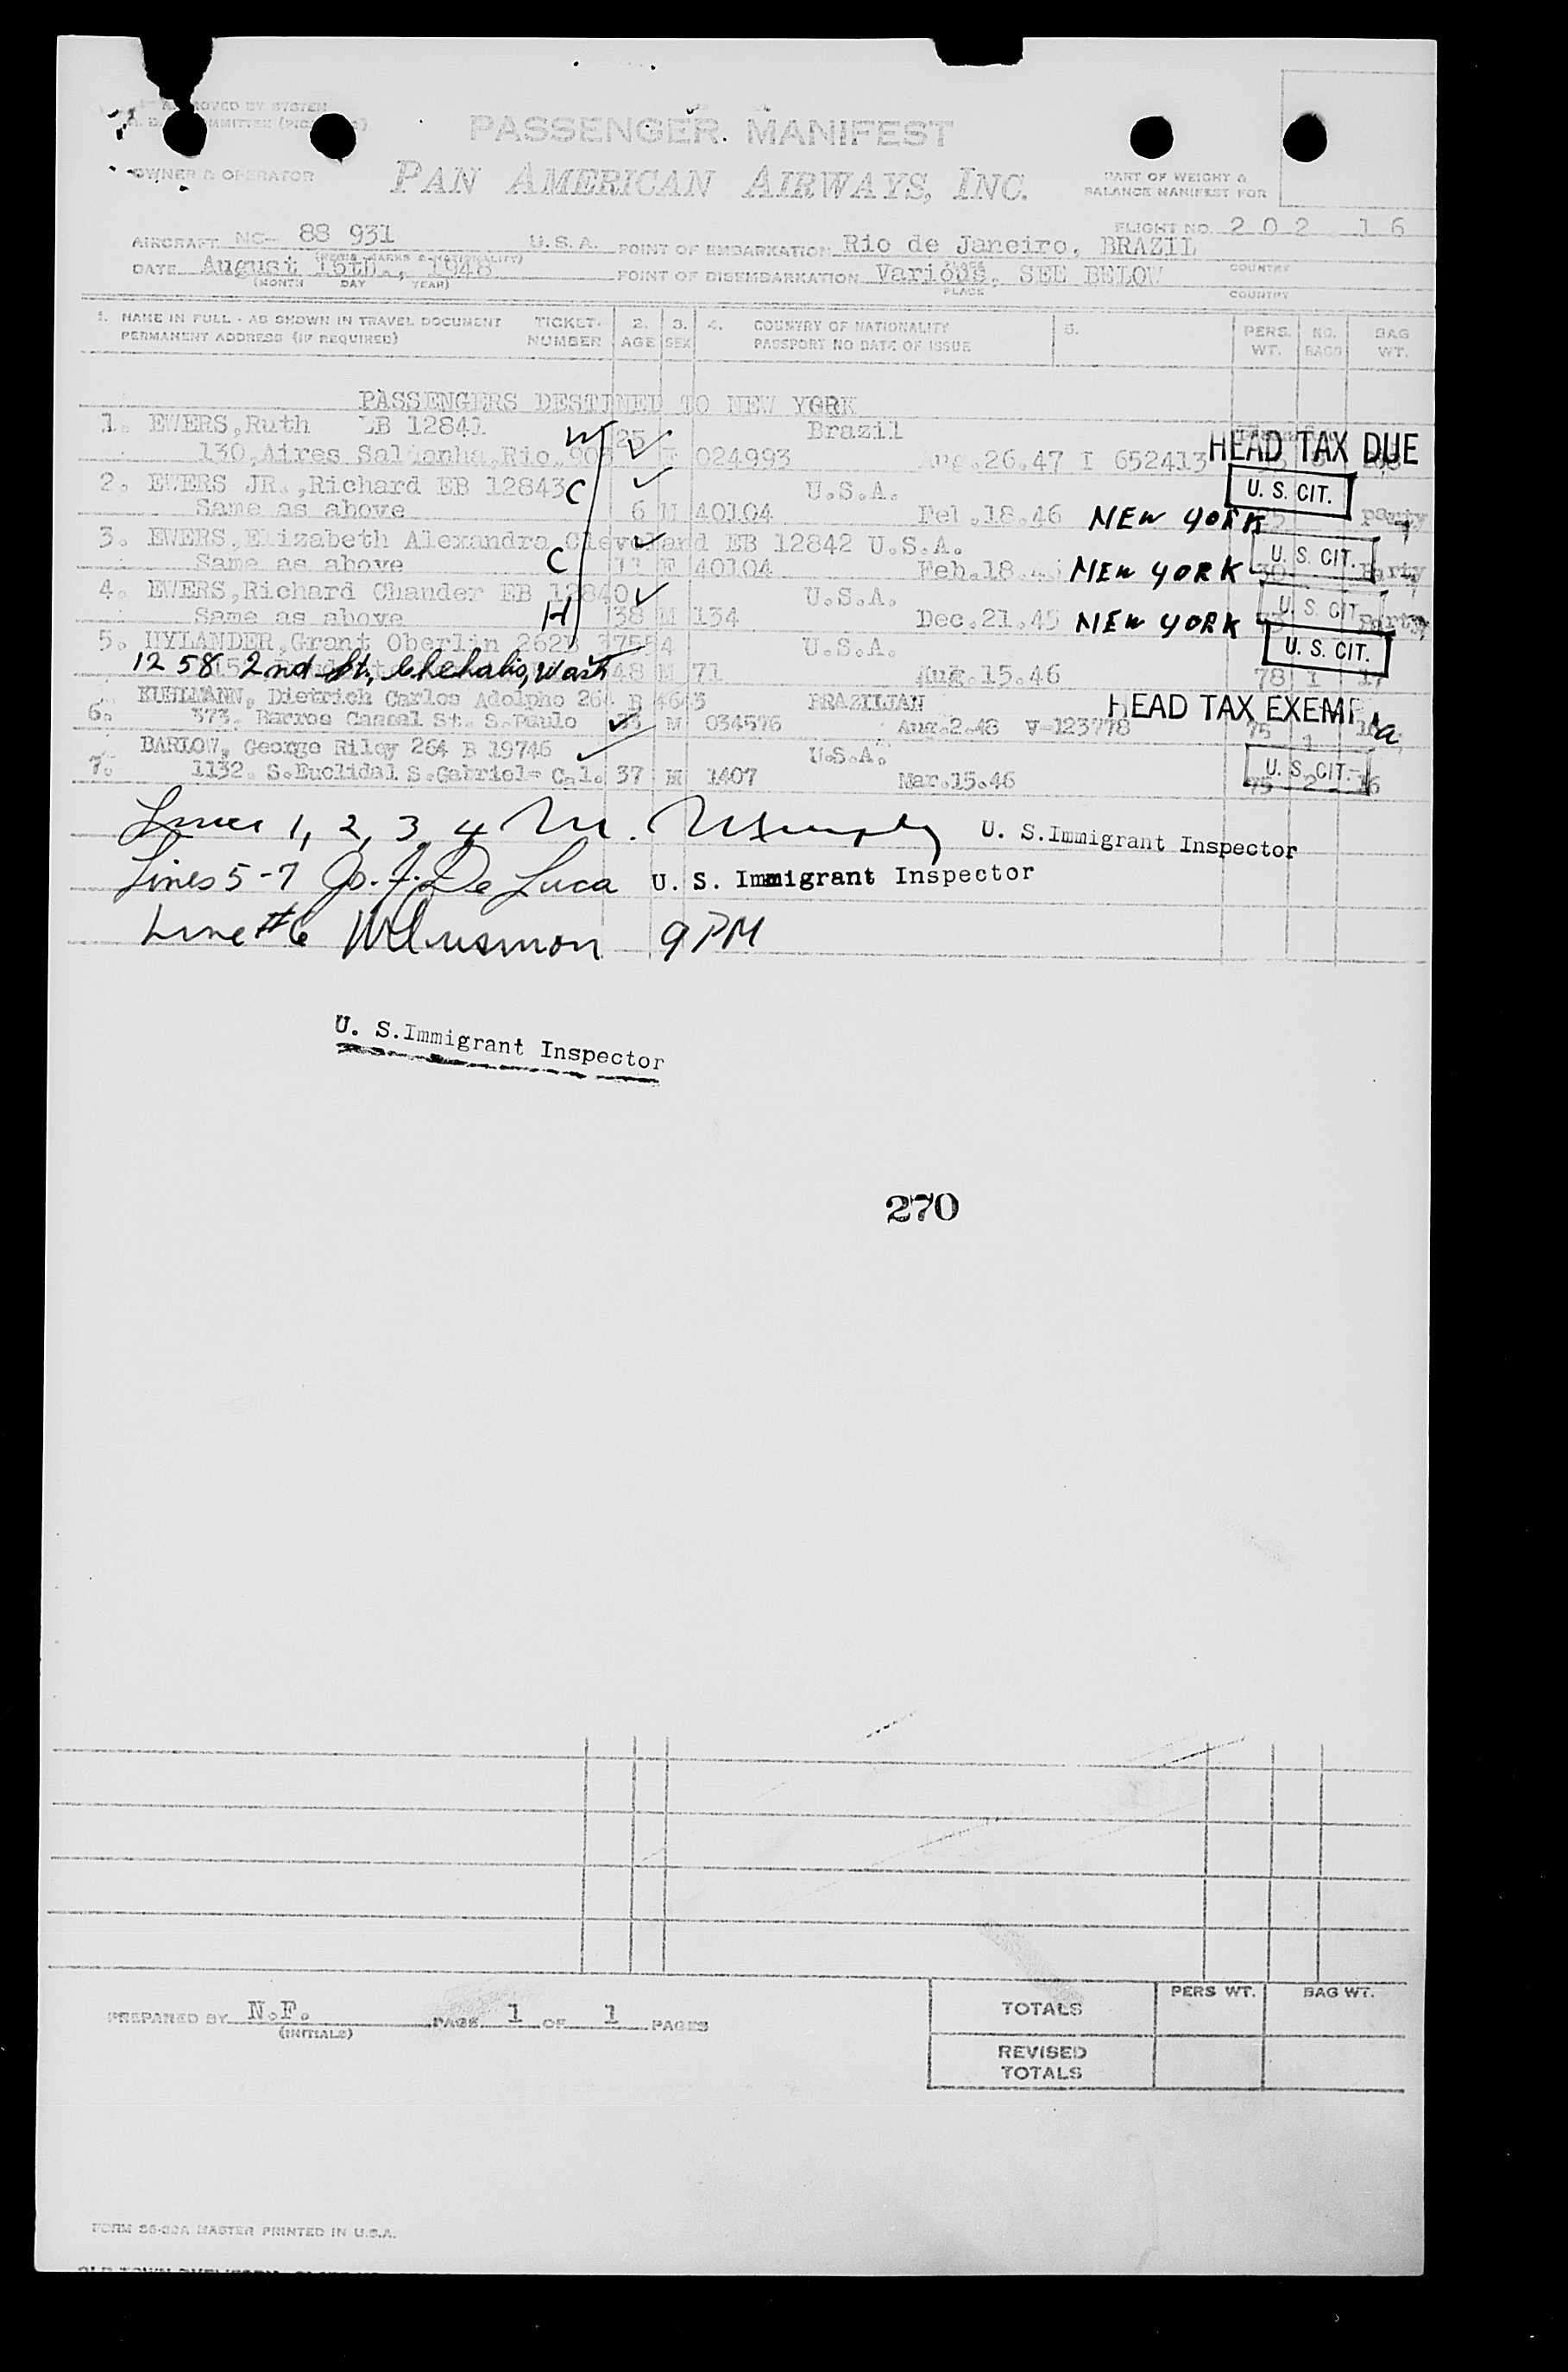 APPROVED BY SYSTEM
PASSENGER MANIFEST
OWNER & OPERATOR
PAN AMERICAN AIRWAYS, INC.
PART OF WEIGHT &
BALANCE MANIFEST FOR
FLIGHT NO. 202 16
AIRCRAFT NC- 88 931 U.S.A. POINT OF EMBARKATION Rio de Janeiro, BRAZIL
(REGIS. MARKS & NATIONALITY) COUNTRY
DATE August 16th., 1948 POINT OF DISEMBARKATION Various, SEE BELOW
(MONTH DAY YEAR) PLACE COUNTRY
1. NAME IN FULL - AS SHOWN IN TRAVEL DOCUMENT TICKET 2. 3. 4. COUNTRY OF NATIONALITY 5. PERS. NO. BAG
PERMANENT ADDRESS (IF REQUIRED) NUMBER AGE SEX PASSPORT NO DATE OF ISSUE WT. BAGS WT.
PASSENGERS DESTINED TO NEW YORK
1. EWERS, Ruth EB 12841 W Brazil
130, Aires Saldanha, Rio, 25 F 024993 Aug. 26. 47 I 652413 HEAD TAX DUE
2. EWERS JR., Richard EB 12843 C U.S.A. U. S. CIT.
Same as above 6 M 40104 Feb. 18. 46 NEW YORK party
3. EWERS, Elizabeth Alexandra Cleveland EB 12842 U.S.A. U. S. CIT.
Same as above C 11 F 40104 Feb. 18. 46 NEW YORK 30 Party
4. EWERS, Richard Chander EB 12840 U.S.A. U. S. CIT.
Same as above H 38 M 134 Dec. 21. 45 NEW YORK Party
5. HYLANDER, Grant Oberlin 262B 37554 U.S.A. U. S. CIT.
1258 2nd St, Chehalis, Wash 48 M 71 Aug. 15. 46 78 I 17
KUHLMANN, Dietrich Carlos Adolpho 264 B BRAZILIAN HEAD TAX EXEMPT
6. 373. Barros Cassal St. S. Paulo M 034576 Aug. 2. 48 V-123778 75 1
BARLOW, George Riley 264 B 19746 U.S.A. U. S. CIT.
7. 1132. S. Euclidal S. Gabriel- Cal. 37 M 1407 Mar. 15. 46 75 2 16
Lines 1, 2, 3, 4 M. Murphy U. S. Immigrant Inspector
Lines 5-7 Jo. J. De Luca U. S. Immigrant Inspector
Line #6 9 PM
U. S. Immigrant Inspector
270
PREPARED BY N.F. PAGE 1 OF 1 PAGES
(INITIALS)
PERS WT. BAG WT.
TOTALS
REVISED
TOTALS
FORM 26-32A MASTER PRINTED IN U.S.A.